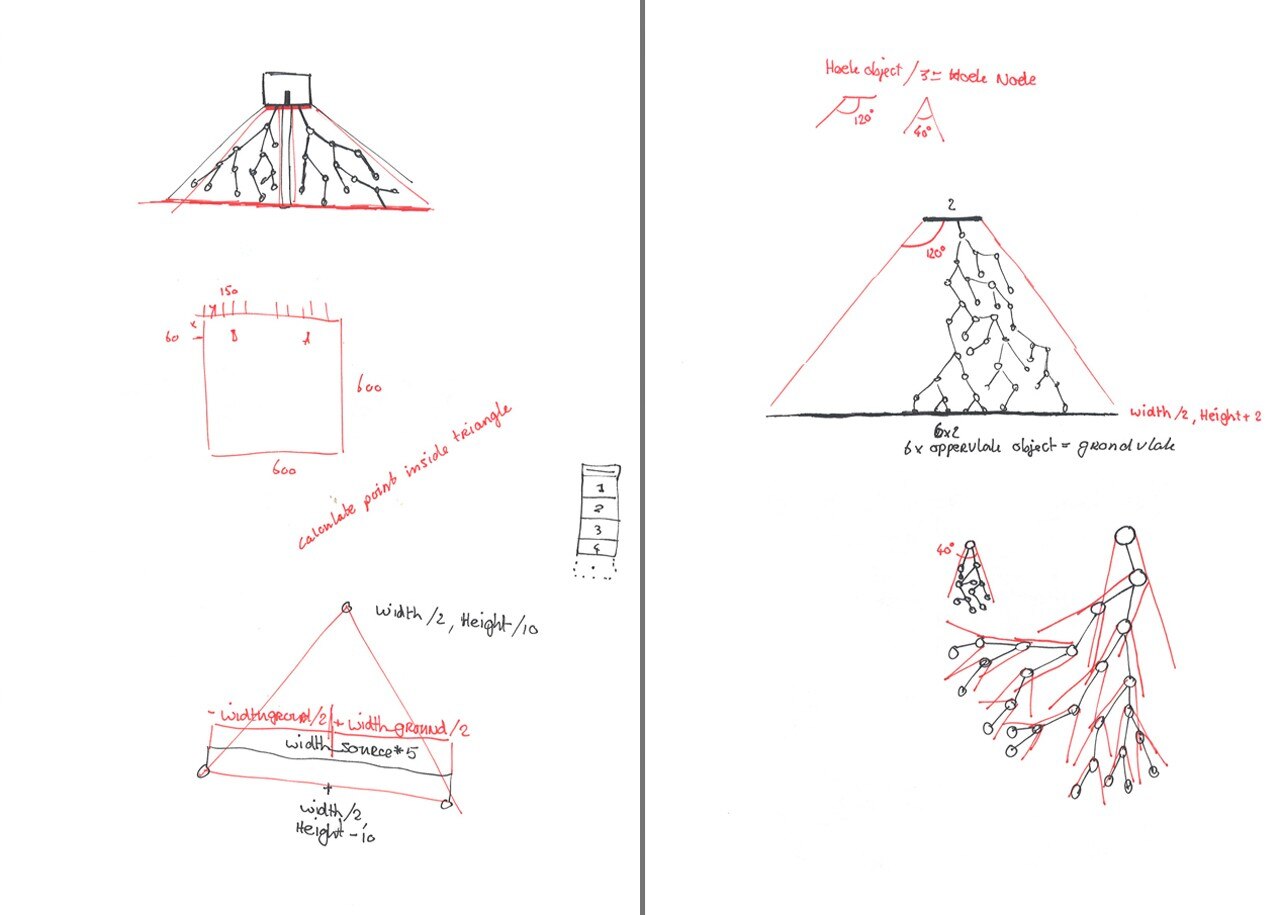 150
x
60
B
A
600
600
calculate point inside triangle
1
2
3
4
width/2, Height/10
- widthground/2 + width ground/2
width source*5
+
width/2
Height-10
Hoek object / 3 = Hoek Node
120°
40°
2
120°
width/2, Height+2
6x2
6x oppervlak object = grondvlak
40°